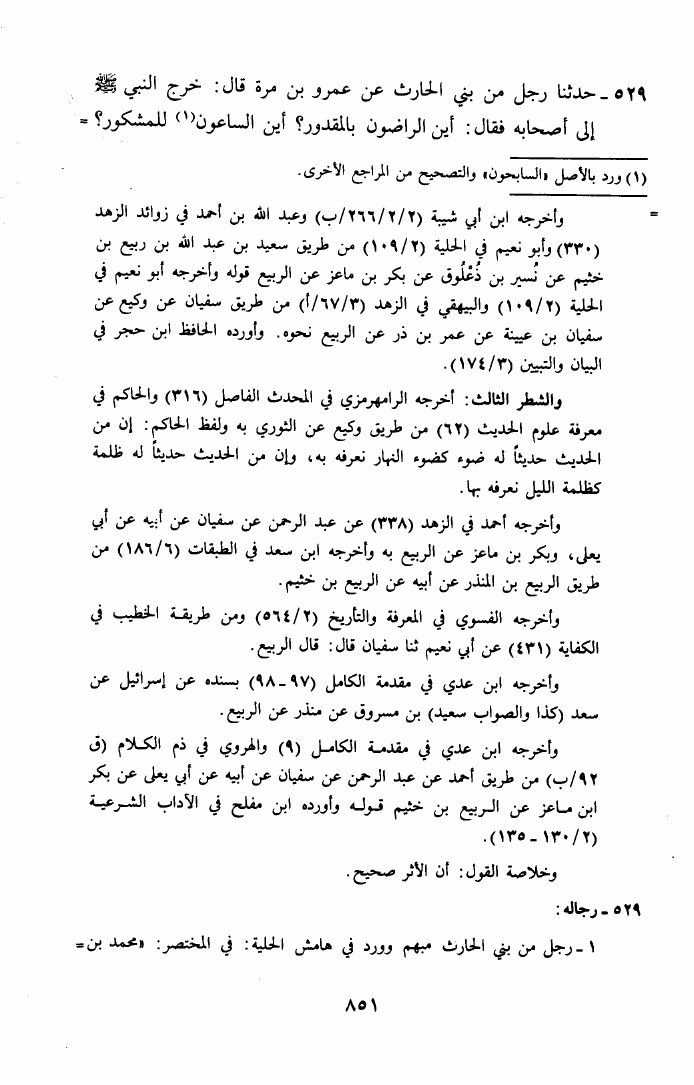 ٥٢٩ ـ حدثنا رجل من بني الحارث عن عمرو بن مرة قال: خرج النبي ﷺ
إلى أصحابه فقال: أين الراضون بالمقدور؟ أين الساعون(١) للمشكور؟ =
(١) ورد بالأصل «السابحون» والتصحيح من المراجع الأخرى.
= وأخرجه ابن أبي شيبة (٢/٢/٢٦٦/ب) وعبد الله بن أحمد في زوائد الزهد
(٣٣٠) وأبو نعيم في الحلية (١٠٩/٢) من طريق سعيد بن عبد الله بن ربيع بن
خثيم عن نُسير بن ذُعْلُوق عن بكر بن ماعز عن الربيع قوله وأخرجه أبو نعيم في
الحلية (١٠٩/٢) والبيهقي في الزهد (٦٧/٣/أ) من طريق سفيان عن وكيع عن
سفيان بن عيينة عن عمر بن ذر عن الربيع نحوه. وأورده الحافظ ابن حجر في
البيان والتبيين (١٧٤/٣).
والشطر الثالث: أخرجه الرامهرمزي في المحدث الفاصل (٣١٦) والحاكم في
معرفة علوم الحديث (٦٢) من طريق وكيع عن الثوري به ولفظ الحاكم: إن من
الحديث حديثاً له ضوء كضوء النهار نعرفه به، وإن من الحديث حديثاً له ظلمة
كظلمة الليل نعرفه بها.
وأخرجه أحمد في الزهد (٣٣٨) عن عبد الرحمن عن سفيان عن أبيه عن أبي
يعلى، وبكر بن ماعز عن الربيع به وأخرجه ابن سعد في الطبقات (١٨٦/٦) من
طريق الربيع بن المنذر عن أبيه عن الربيع بن خثيم.
وأخرجه الفسوي في المعرفة والتأريخ (٥٦٤/٢) ومن طريقة الخطيب في
الكفاية (٤٣١) عن أبي نعيم ثنا سفيان قال: قال الربيع.
وأخرجه ابن عدي في مقدمة الكامل (٩٧ ـ ٩٨) بسنده عن إسرائيل عن
سعد (كذا والصواب سعيد) بن مسروق عن منذر عن الربيع.
وأخرجه ابن عدي في مقدمة الكامل (٩) والهروي في ذم الكلام (ق
٩٢/ب) من طريق أحمد عن عبد الرحمن عن سفيان عن أبيه عن أبي يعلى عن بكر
ابن ماعز عن الربيع بن خثيم قوله وأورده ابن مفلح في الآداب الشرعية
(١٣٠/٢ ـ ١٣٥).
وخلاصة القول: أن الأثر صحيح.
٥٢٩ ـ رجاله:
١ ـ رجل من بني الحارث مبهم وورد في هامش الحلية: في المختصر: «محمد بن=
٨٥١